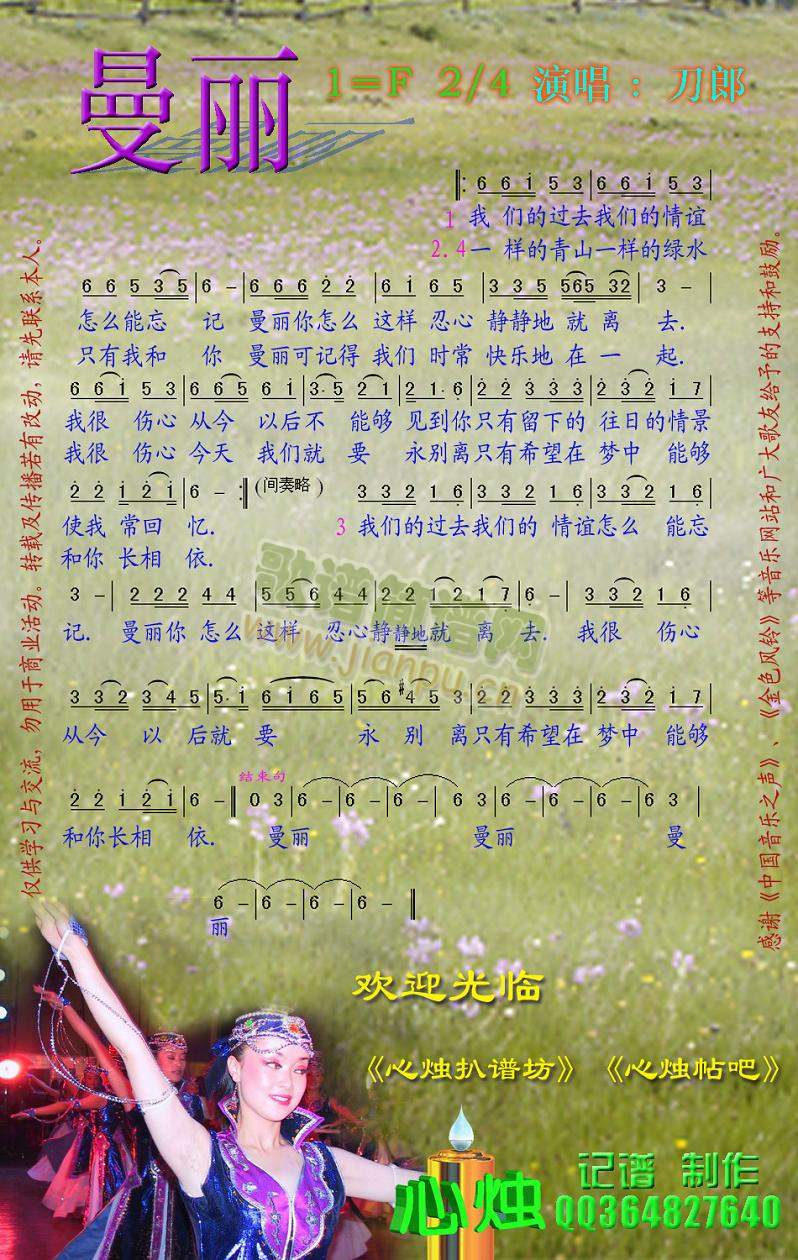 曼丽
1=F 2/4 演唱：刀郎
6 6 i 5 3 | 6 6 i 5 3 |
1 我们的过去我们的情谊
2.4 一样的青山一样的绿水
6 6 5 3 5 | 6 – | 6 6 6 2 2 | 6 i 6 5 | 3 3 5 565 32 | 3 – |
怎么能忘 记 曼丽你怎么 这样 忍心 静静地 就 离 去.
只有我和 你 曼丽可记得 我们 时常 快乐地 在 一 起.
6 6 i 5 3 | 6 6 5 6 i | 3· 5 2 1 | 2 1· 6 | 2 2 3 3 3 | 2 3 2 i 7 |
我很 伤心 从今 以后不 能够 见到你只有留下的 往日的情景
我很 伤心 今天 我们就 要 永别离只有希望在 梦中 能够
2 2 i 2 i | 6 – :‖ (间奏略) 3 3 2 1 6 | 3 3 2 1 6 | 3 3 2 1 6 |
使我 常回 忆. 3 我们的过去我们的 情谊怎么 能忘
和你 长相 依.
3 – | 2 2 2 4 4 | 5 5 6 4 4 | 2 2 1 2 1 7 | 6 – | 3 3 2 1 6 |
记. 曼丽你 怎么 这样 忍心静静地就 离 去. 我很 伤心
3 3 2 3 4 5 | 5· i 6 i 6 5 | 5 6 #4 5 3 | 2 2 3 3 3 | 2 3 2 i 7 |
从今 以 后就 要 永 别 离只有希望在 梦中 能够
结束句
2 2 i 2 i | 6 – ‖ 0 3 | 6 – | 6 – | 6 – | 6 3 | 6 – | 6 – | 6 – | 6 3 |
和你长相 依. 曼丽 曼丽 曼
6 – | 6 – | 6 – | 6 – ‖
丽
仅供学习与交流，勿用于商业活动。转载及传播若有改动，请先联系本人。
感谢《中国音乐之声》、《金色风铃》等音乐网站和广大歌友给予的支持和鼓励。
歌谱简谱网
www.jianpu.cn
欢迎光临
《心烛扒谱坊》 《心烛帖吧》
心烛
记谱 制作
QQ364827640